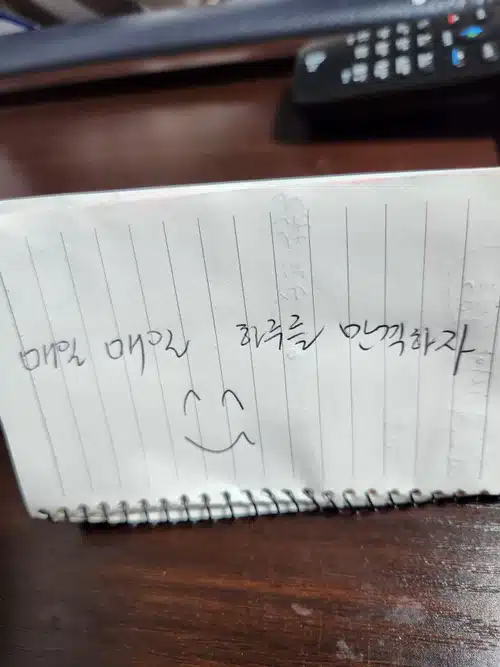 매일 매일 하루를 만끽하자